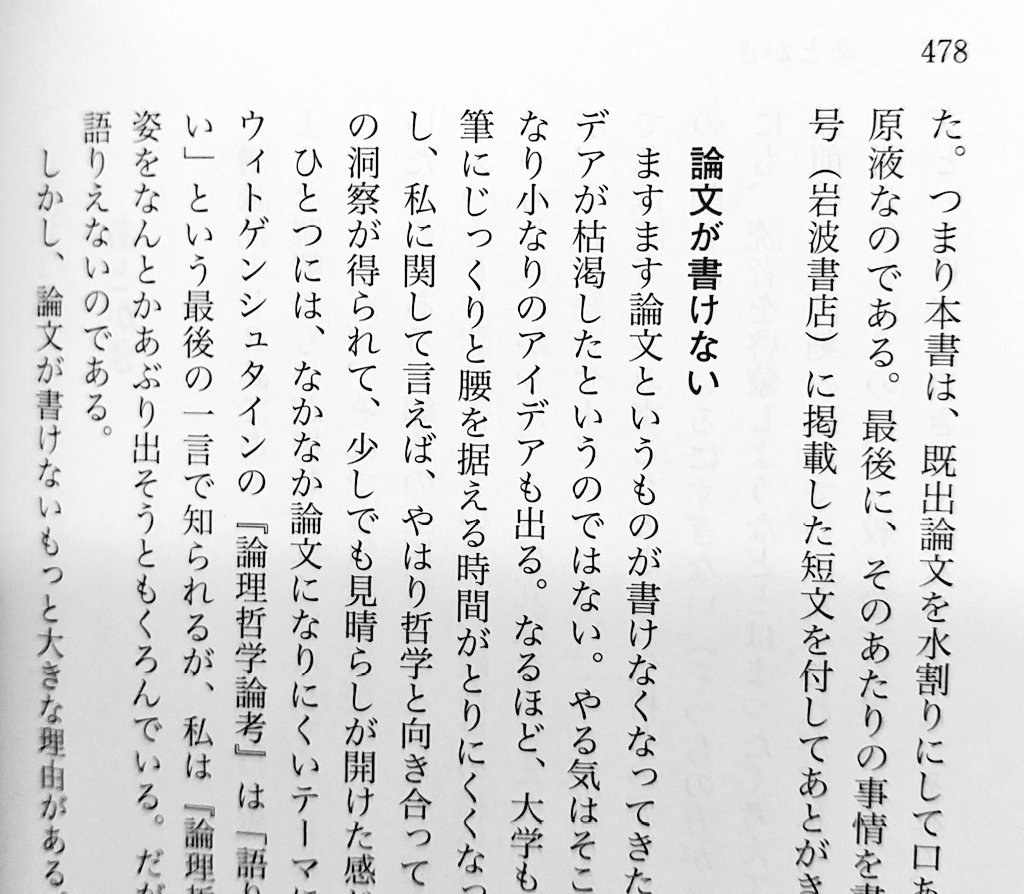 478
た。つまり本書は、既出論文を水割りにして口あ
原液なのである。最後に、そのあたりの事情を書
号（岩波書店）に掲載した短文を付してあとがき
論文が書けない
ますます論文というものが書けなくなってきた
デアが枯渇したというのではない。やる気はそこ
なり小なりのアイデアも出る。なるほど、大学も
筆にじっくりと腰を据える時間がとりにくくなっ
し、私に関して言えば、やはり哲学と向き合って
の洞察が得られて、少しでも見晴らしが開けた感
ひとつには、なかなか論文になりにくいテーマに
ウィトゲンシュタインの『論理哲学論考』は「語り
い」という最後の一言で知られるが、私は『論理哲
姿をなんとかあぶり出そうともくろんでいる。だが
語りえないのである。
しかし、論文が書けないもっと大きな理由がある。